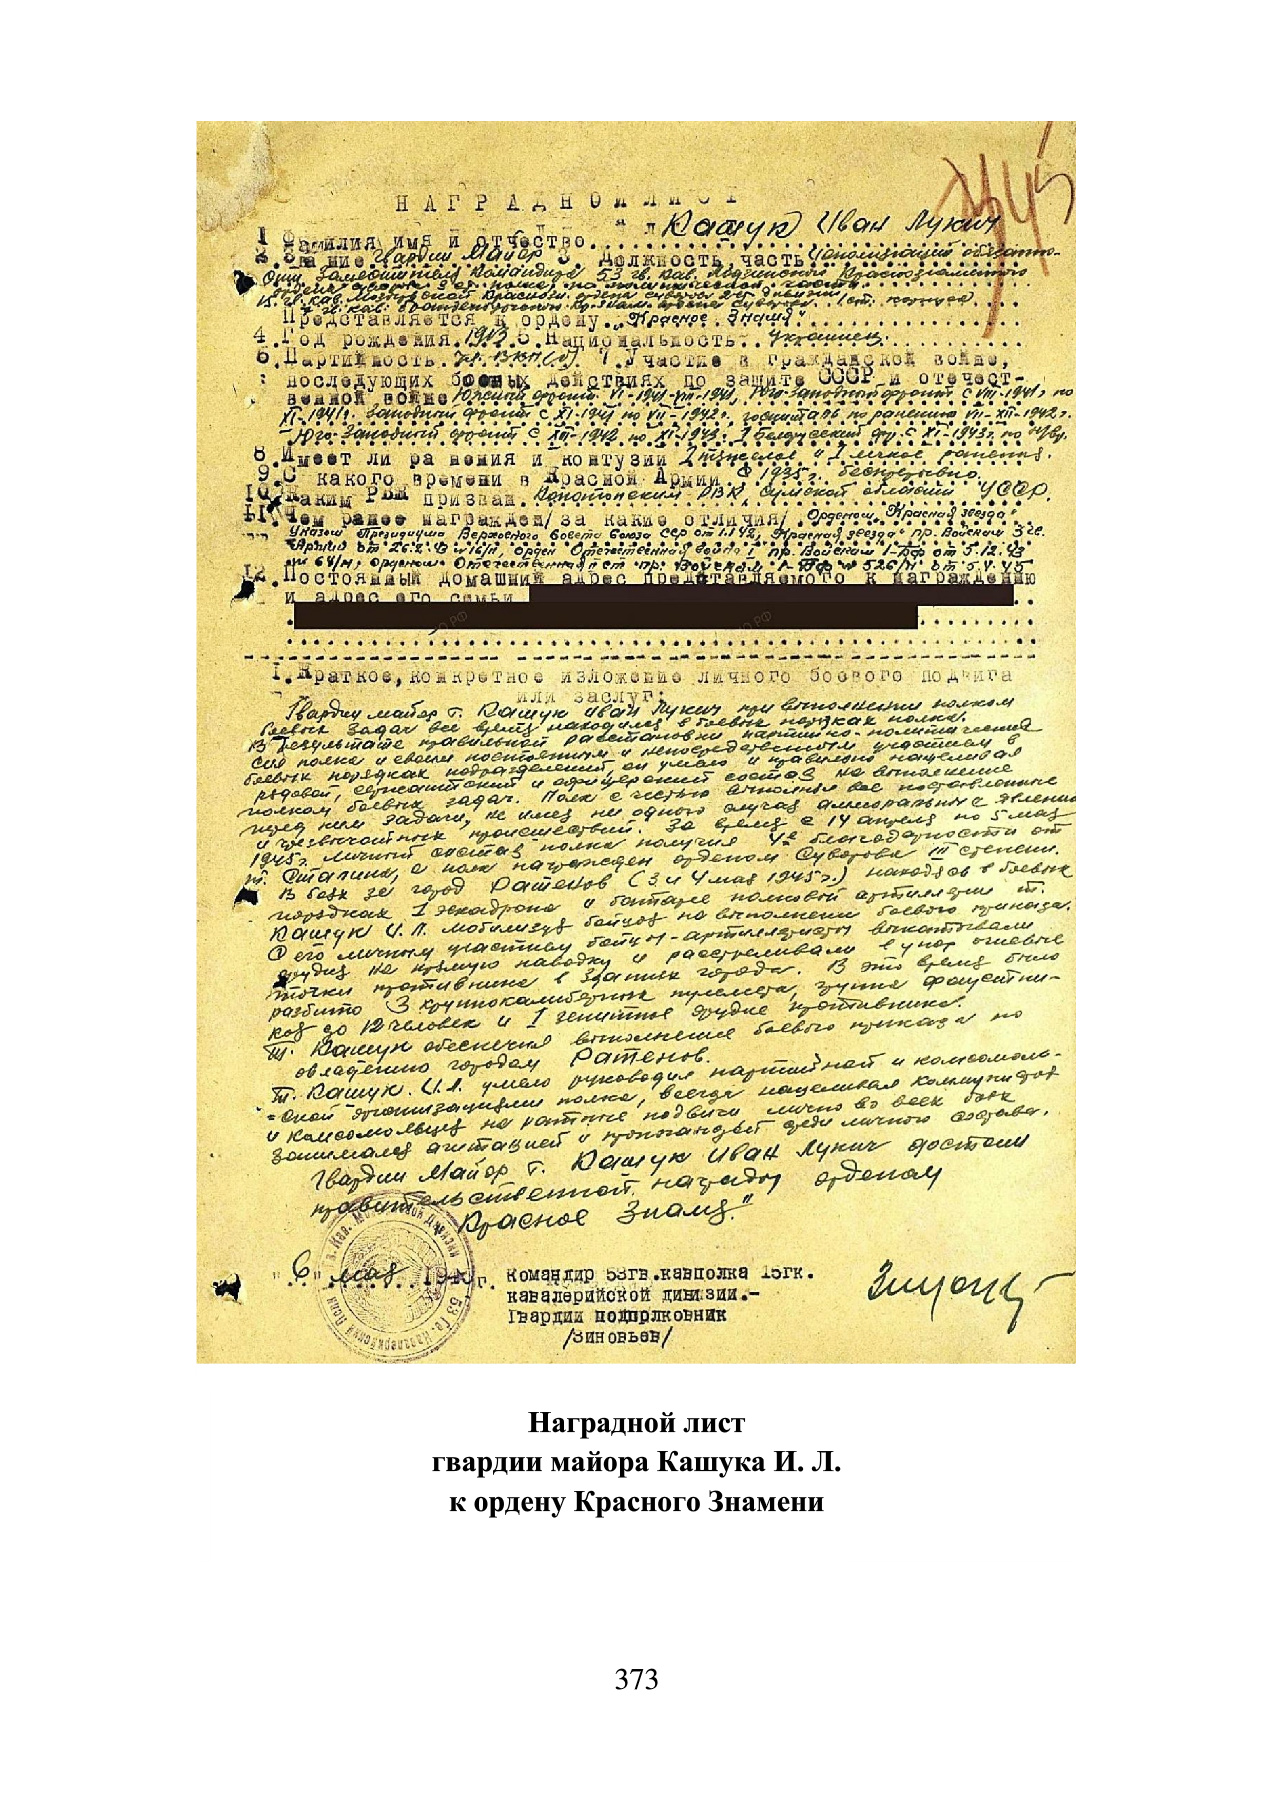 НАГРАДНОЙ ЛИСТ
1 Фамилия имя и отчество. Кашук Иван Лукич
2. Звание Гвардии Майор 3. Должность, часть Исполняющий обязанно-
сти заместителя Командира 53 гв. кав. Краснознаменного
ордена полка, по политической части
15 гв. кав. Мозырской Краснозн. ордена Суворова 2 ст. дивизии
Представляется к ордену „Красное Знамя"
4. Год рождения. 1913 5. Национальность. Украинец.
6. Партийность. чл. ВКП(б). 7. Участие в гражданской войне,
последующих боевых действиях по защите СССР и отечест-
венной войне Южный фронт VI-1941-VIII-1941, Юго-Западный фронт с VIII-1941г. по
XI-1941г. Западный фронт с XI-1941 по VII-1942г. госпиталь по ранению VII-XII-1942г.
Юго-Западный фронт с XII-1942 по XI-1943г. 1 Белорусский фр. с XI-1943г. по н/вр.
8. Имеет ли ранения и контузии 2 тяжелое и 1 легкое ранения.
9. С какого времени в Красной Армии С 1935г. беспрерывно.
10. Каким РВК призван. Конотопским РВК, Сумской области УССР.
11. Чем ранее награжден/за какие отличия/. Орденом „Красная звезда"
Указом Президиума Верховного Совета Союза ССР от 1.1.42, „Красная звезда" пр. Войскам 3 гв.
Армии от 26.2.43 №16/н, орден Отечественная война I пр. Войскам 1-БФ от 5.12.43
№ 64/н, орденом Отечественная ст. пр. Войскам 1-БФ № 526/н от 5.V.45
12. Постоянный домашний адрес представляемого к награждению
и адрес его семьи
1. Краткое, конкретное изложение личного боевого подвига
или заслуг:
Гвардии майор т. Кашук Иван Лукич при выполнении полком
боевых задач все время находился в боевых порядках полка.
В результате правильной расстановки партийно-политических
сил полка и своим постоянным и непосредственным участием в
боевых порядках подразделений, он умело и правильно нацеливал
рядовой, сержантский и офицерский состав на выполнение
полком боевых задач. Полк с честью выполнял все поставленные
перед ним задачи, не имел ни одного случая аморальных явлений
и чрезвычайных происшествий. За время с 14 апреля по 5 мая
1945г. личный состав полка получил 4е благодарности от
т. Сталина, а полк награжден орденом Суворова III степени.
В боях за город Ратенов (3 и 4 мая 1945г.) находясь в боевых
порядках 1 эскадрона и батареи полковой артиллерии т.
Кашук И.Л. мобилизуя бойцов на выполнение боевого приказа.
С его личным участием бойцы-артиллеристы выкатывали
орудия на прямую наводку и расстреливали в упор огневые
точки противника в зданиях города. В это время было
разбито 3 крупнокалиберных пулемета, группа фаустни-
ков до 12 человек и 1 зенитное орудие противника.
Т. Кашук обеспечил выполнение боевого приказа по
овладению городом Ратенов.
Т. Кашук. И.Л. умело руководил партийной и комсомоль-
ской организациями полка, всегда нацеливал коммунистов
и комсомольцев на ратные подвиги лично во всех боях
занимался агитацией и пропагандой среди личного состава.
Гвардии Майор т. Кашук Иван Лукич достоин
правительственной награды орденом
„Красное Знамя."
"6" мая 1945г.
Командир 53гв.кавполка 15гк.
кавалерийской дивизии.-
Гвардии подполковник
/Зиновьев/
Наградной лист
гвардии майора Кашука И. Л.
к ордену Красного Знамени
373